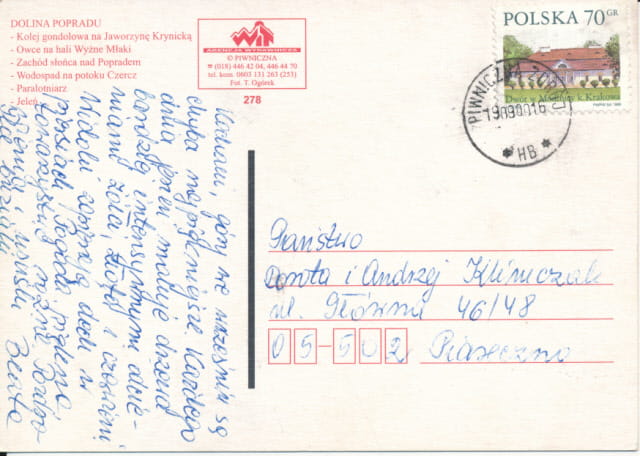 DOLINA POPRADU
- Kolej gondolowa na Jaworzynę Krynicką
- Owce na hali Wyżne Młaki
- Zachód słońca nad Popradem
- Wodospad na potoku Czercz
- Paralotniarz
- Jeleń
WiT
AGENCJA WYDAWNICZA
© PIWNICZNA
☎ (018) 446 42 04, 446 44 70
tel. kom. 0603 131 263 (253)
Fot. T. Ogórek
278
POLSKA 70 GR
Dwór w k. Krakowa
PIWNICZNA ZDRÓJ
190900 16
* HB *
góry we wrześniu są
chyba najpiękniejsze Każdego
dnia jesień maluje drzewa
bardziej intensywnymi odcie-
niami żółci, i czerwieni
Widoki dech w
piersiach Pogoda piękna
Pozdro-
wienia i uściski Beata
Państwo
Dorota i Andrzej Klimczak
ul. Główna 46/48
05-502 Piaseczno